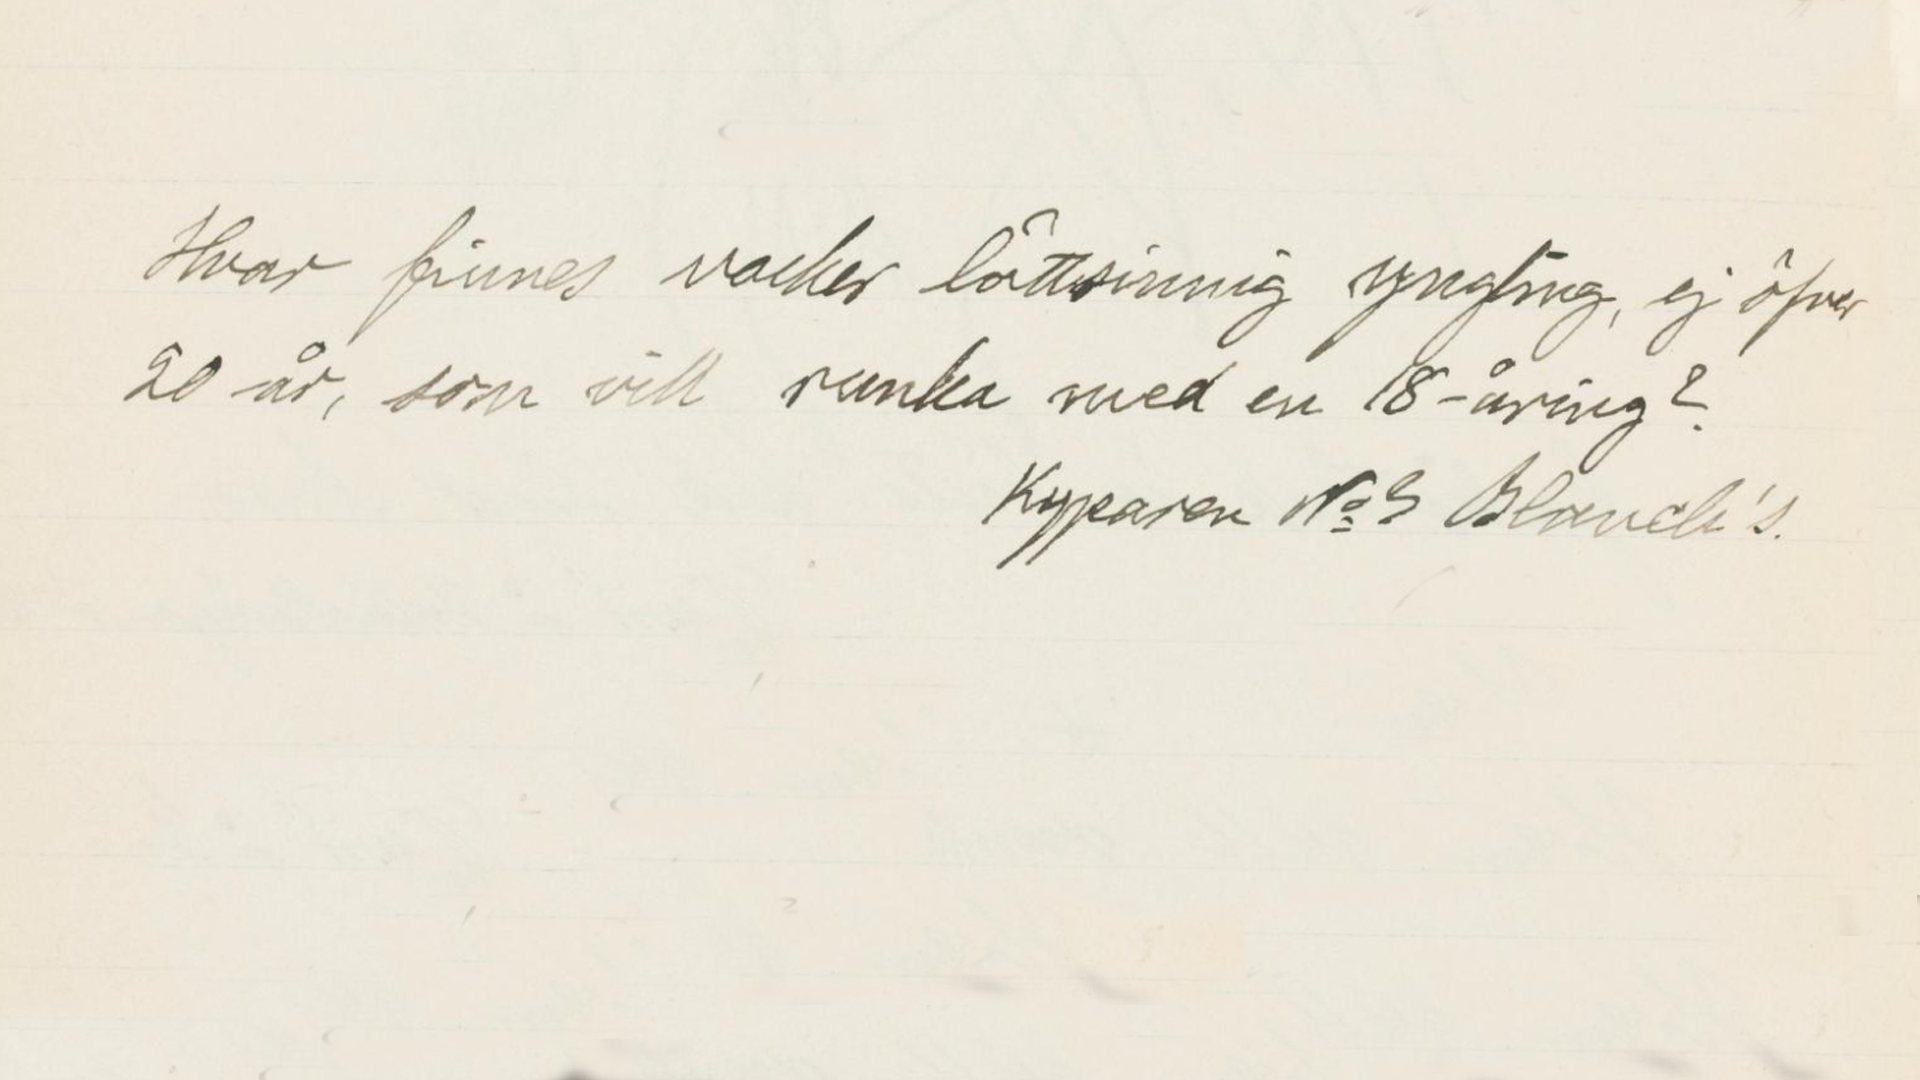 Hvar finnes vacker lättsinnig yngling, ej öfver
20 år, som vill runka med en 18-åring?
Kyparen No 9 Blanch's.